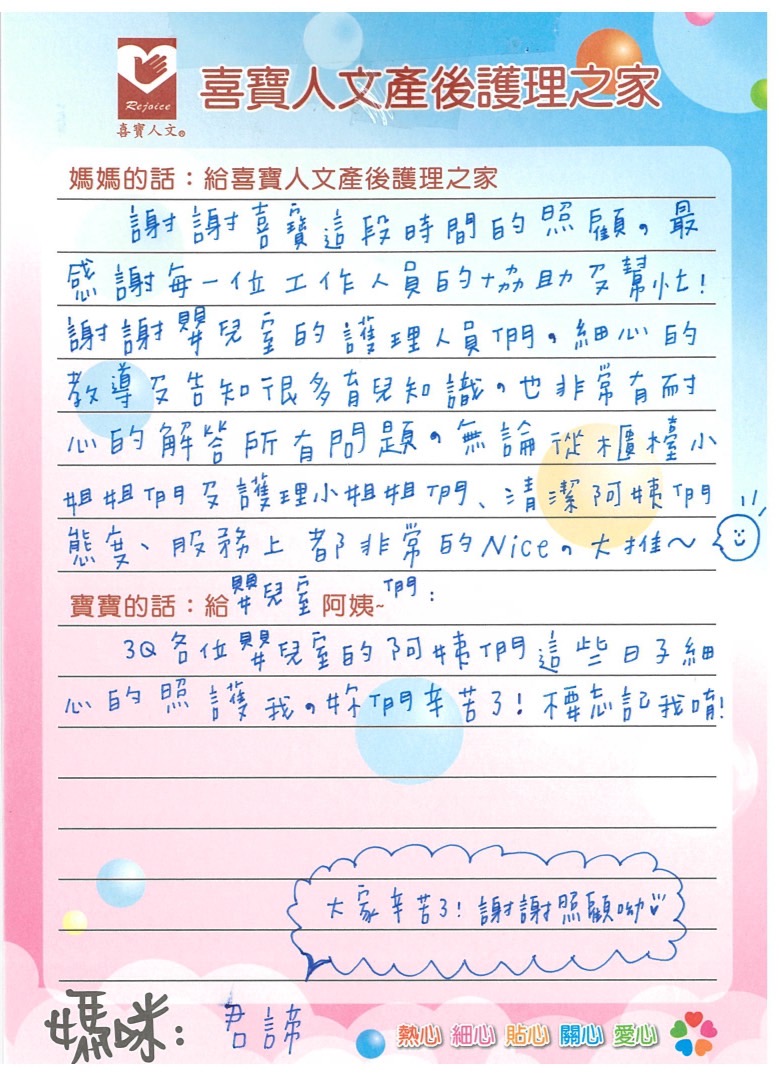 Rejoice
喜寶人文®
喜寶人文產後護理之家
媽媽的話：給喜寶人文產後護理之家
謝謝喜寶這段時間的照顧。最
感謝每一位工作人員的協助及幫忙!
謝謝嬰兒室的護理人員們。細心的
教導及告知很多育兒知識。也非常有耐
心的解答所有問題。無論從櫃檯小
姐姐們及護理小姐姐們、清潔阿姨們
態度、服務上都非常的Nice。大推～
寶寶的話：給嬰兒室阿姨~們：
3Q各位嬰兒室的阿姨們這些日子細
心的照護我。妳們辛苦了! 不要忘記我唷!
大家辛苦了! 謝謝照顧呦
媽咪： 君諦
熱心 細心 貼心 關心 愛心